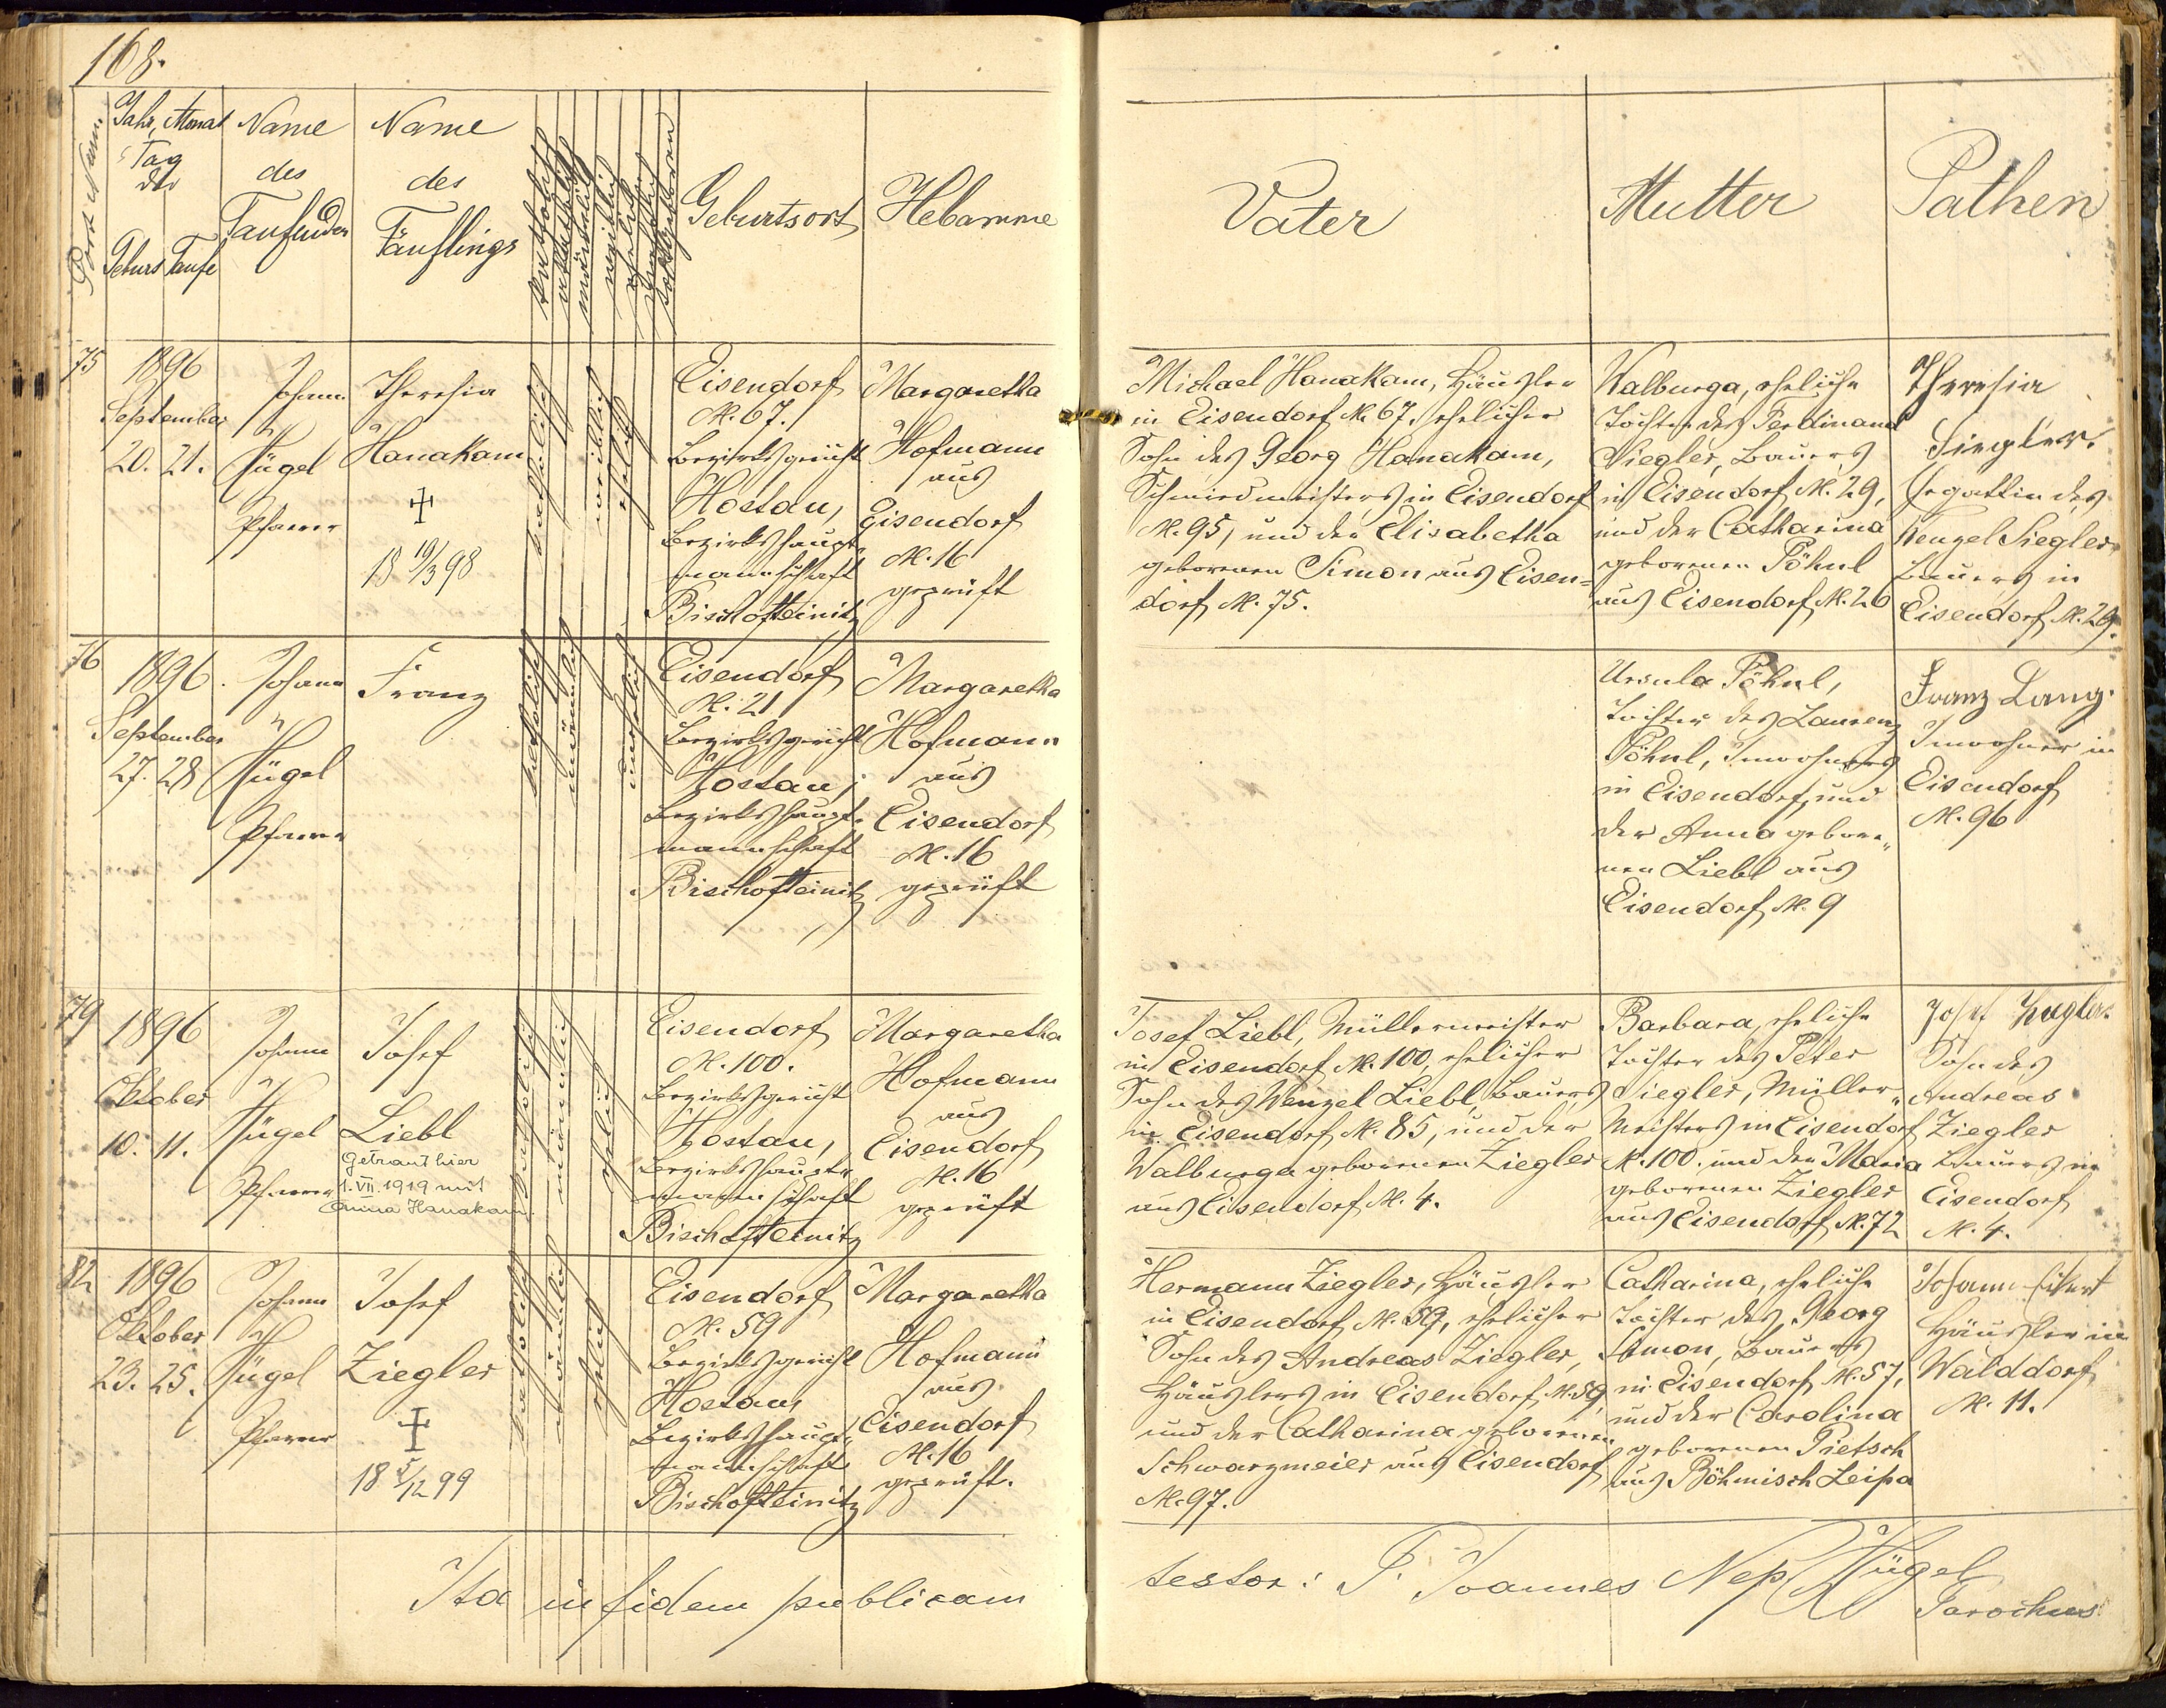 168.
Jahr, Monat
Tag
der
Geburt Taufe
Name
des
Taufenden
Name
des
Täuflings
katholisch
männlich
weiblich
ehelich
unehelich
todtgeboren
Geburtsort
Hebamme
Vater
Mutter
Pathen
75
1896
September
20. 21.
Johann
N.
Hügel
Pfarrer
Theresia
Hanakam
18 19/3 98
katholisch
weiblich
ehelich
Eisendorf
N. 67.
Bezirksgericht
Hostau,
Bezirkshaupt-
mannschaft
Bischofteinitz
Margaretha
Hofmann
aus
Eisendorf
N. 16
geprüft
Michael Hanakam, Häusler
in Eisendorf N. 67, ehelicher
Sohn des Georg Hanakam,
Schmiedmeisters in Eisendorf
N. 95, und der Elisabetha
geborenen Simon aus Eisen-
dorf N. 75.
Walburga, eheliche
Tochter des Ferdinand
Siegler, Bauers
in Eisendorf N. 29,
und der Catharina
geborenen Pöhnl
aus Eisendorf N. 26
Theresia
Siegler.
Egattin des
Wenzel Siegler
Bauers in
Eisendorf N. 29.
76
1896
September
27. 28
Johann
N.
Hügel
Pfarrer
Franz
katholisch
männlich
unehelich
Eisendorf
N. 21
Bezirksgericht
Hostau,
Bezirkshaupt-
mannschaft
Bischofteinitz
Margaretha
Hofmann
aus
Eisendorf
N. 16
geprüft
Ursula Pöhnl,
Tochter des Laurenz
Pöhnl, Inwohners
in Eisendorf, und
der Anna gebore-
nen Liebl aus
Eisendorf N. 9
Franz Lang.
Inwohner in
Eisendorf
N. 96
79
1896
Oktober
10. 11.
Johann
N.
Hügel
Pfarrer
Josef
Liebl
Getraut hier
1. VII. 1919 mit
Anna Hanakam
katholisch
männlich
ehelich
Eisendorf
N. 100.
Bezirksgericht
Hostau,
Bezirkshaupt-
mannschaft
Bischofteinitz
Margaretha
Hofmann
aus
Eisendorf
N. 16
geprüft
Josef Liebl, Müllermeister
in Eisendorf N. 100, ehelicher
Sohn des Wenzel Liebl, Bauers
in Eisendorf N. 85, und der
Walburga geborenen Ziegler
aus Eisendorf N. 4.
Barbara, eheliche
Tochter des Peter
Siegler, Müller-
Meisters in Eisendorf
N. 100. und der Maria
geborenen Ziegler
aus Eisendorf N. 72
Josef
Sohn des
Andreas
Ziegler
Bauers in
Eisendorf
N. 4.
82
1896
Oktober
23. 25.
Johann
N.
Hügel
Pfarrer
Josef
Ziegler
18 5/12 99
katholisch
männlich
ehelich
Eisendorf
N. 59
Bezirksgericht
Hostau,
Bezirkshaupt-
mannschaft
Bischofteinitz
Margaretha
Hofmann
aus
Eisendorf
N. 16
geprüft.
Hermann Ziegler, Häusler
in Eisendorf N. 59, ehelicher
Sohn des Andreas Ziegler,
Häuslers in Eisendorf N. 59,
und der Catharina geborenen
Schwarzmeier aus Eisendorf
N. 97.
Catharina, eheliche
Tochter des Georg
Simon, Bauers
in Eisendorf N. 57,
und der Carolina
geborenen Pietsch
aus Böhmisch Leipa
Johann
Häusler in
Walddorf
N. 11.
Ita in fidem publicam
testor: P. Joannes Nep. Hügel
Parochus